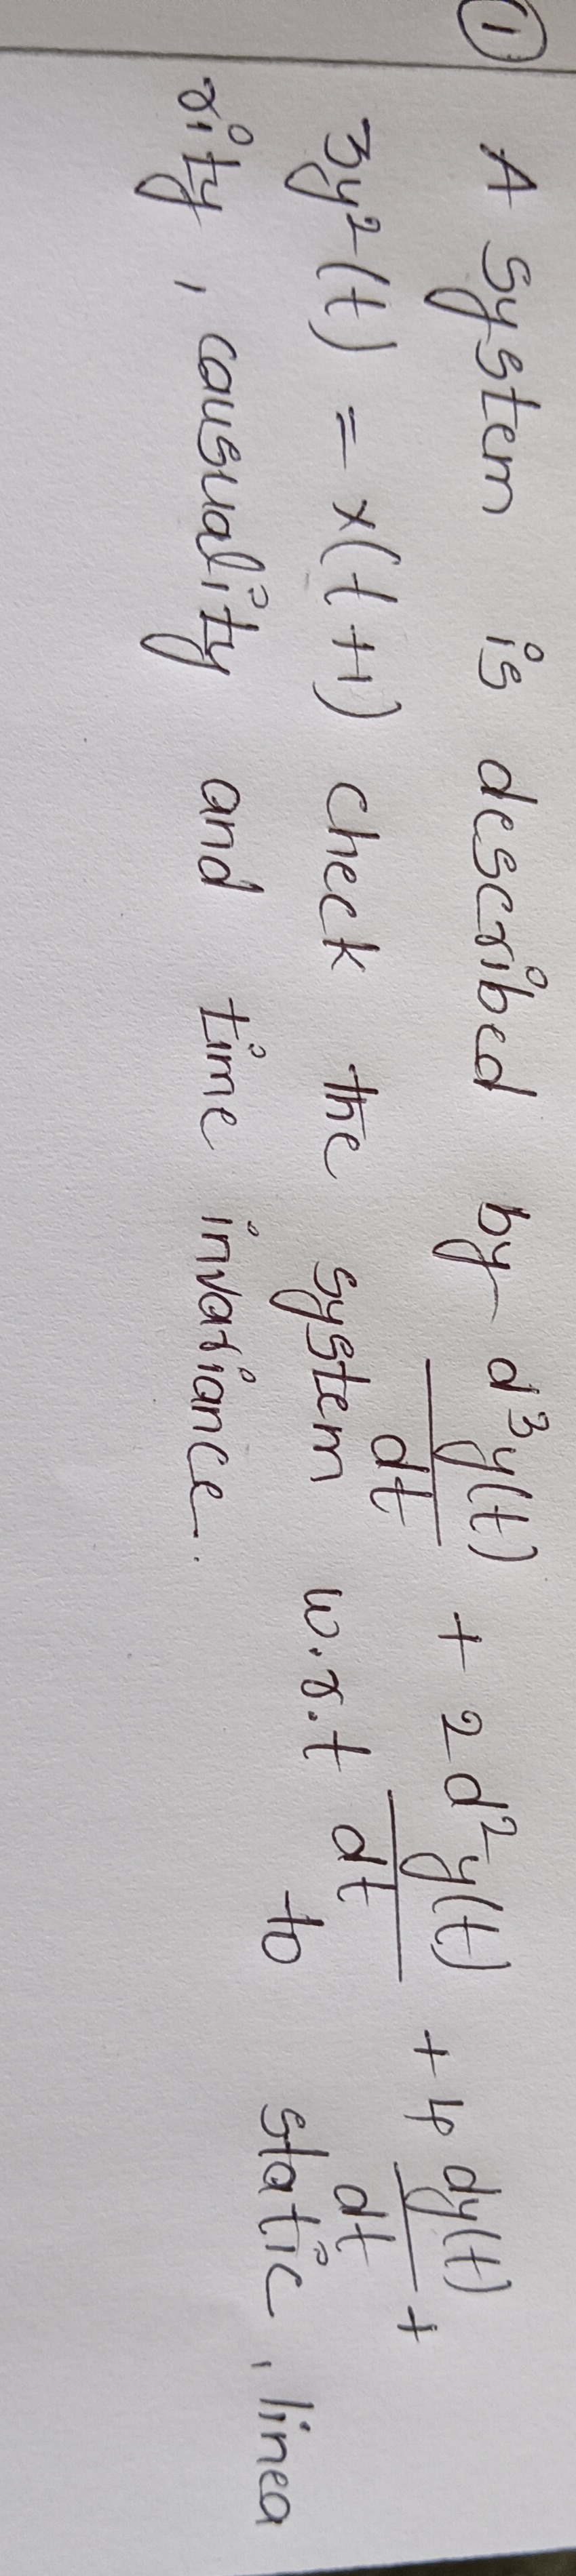 ① A system is described by d³y(t)/dt + 2d²y(t)/dt + 4dy(t)/dt +
3y²(t) = x(t+1) check the system w.r.t to static, linea
rity, causuality and time invariance.